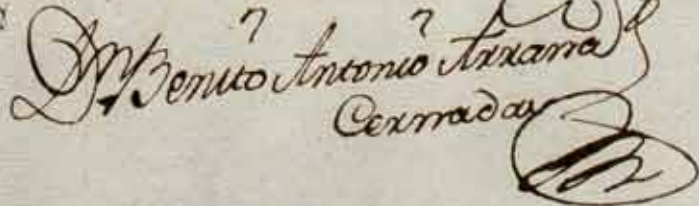 Dn. Benito Antonio Arrana
Cernadas